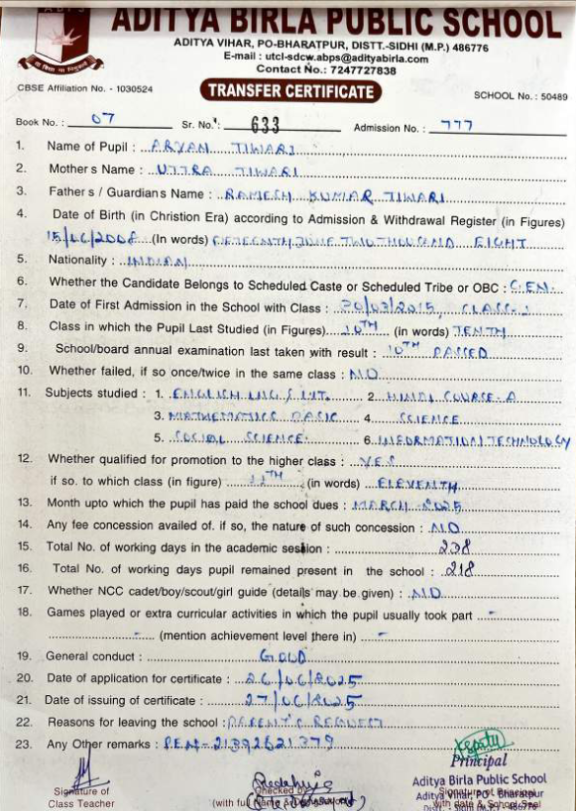 ADITYA BIRLA PUBLIC SCHOOL
ADITYA VIHAR, PO-BHARATPUR, DISTT.-SIDHI (M.P.) 486776
E-mail : utcl-sdcw.abps@adityabirla.com
Contact No.: 7247727838
CBSE Affiliation No. - 1030524
TRANSFER CERTIFICATE
SCHOOL No. : 50489
Book No. : 07 Sr. No. : 633 Admission No. : 777
1. Name of Pupil : ARYAN TIWARI
2. Mother s Name : UTTRA TIWARI
3. Father s / Guardians Name : RAMESH KUMAR TIWARI
4. Date of Birth (in Christion Era) according to Admission & Withdrawal Register (in Figures)
15/06/2008 (In words) FIFTEENTH JUNE TWO THOUSAND EIGHT
5. Nationality : INDIAN
6. Whether the Candidate Belongs to Scheduled Caste or Scheduled Tribe or OBC : GEN.
7. Date of First Admission in the School with Class : 20/03/2015, CLASS-
8. Class in which the Pupil Last Studied (in Figures) 10TH (in words) TENTH
9. School/board annual examination last taken with result : 10TH PASSED
10. Whether failed, if so once/twice in the same class : NO
11. Subjects studied : 1. ENGLISH LNG & LIT. 2. HINDI COURSE-A
3. MATHEMATICS BASIC 4 SCIENCE
5. SOCIAL SCIENCE 6. INFORMATION TECHNOLOGY
12. Whether qualified for promotion to the higher class : YES
if so. to which class (in figure) 11TH (in words) ELEVENTH
13. Month upto which the pupil has paid the school dues : MARCH-2025
14. Any fee concession availed of. if so, the nature of such concession : NO
15. Total No. of working days in the academic session : 238
16. Total No. of working days pupil remained present in the school : 218
17. Whether NCC cadet/boy/scout/girl guide (details may be given) : NO
18. Games played or extra curricular activities in which the pupil usually took part -
- (mention achievement level there in) -
19. General conduct : GOOD
20. Date of application for certificate : 26/06/2025
21. Date of issuing of certificate : 27/06/2025
22. Reasons for leaving the school : PARENT'S REQUEST
23. Any Other remarks : PEN-21392621379
Principal
Aditya Birla Public School
Signature of
Class Teacher
Checked by
(with full Name
Aditya Vihar, PO- Bharatpur
with date & School Seal